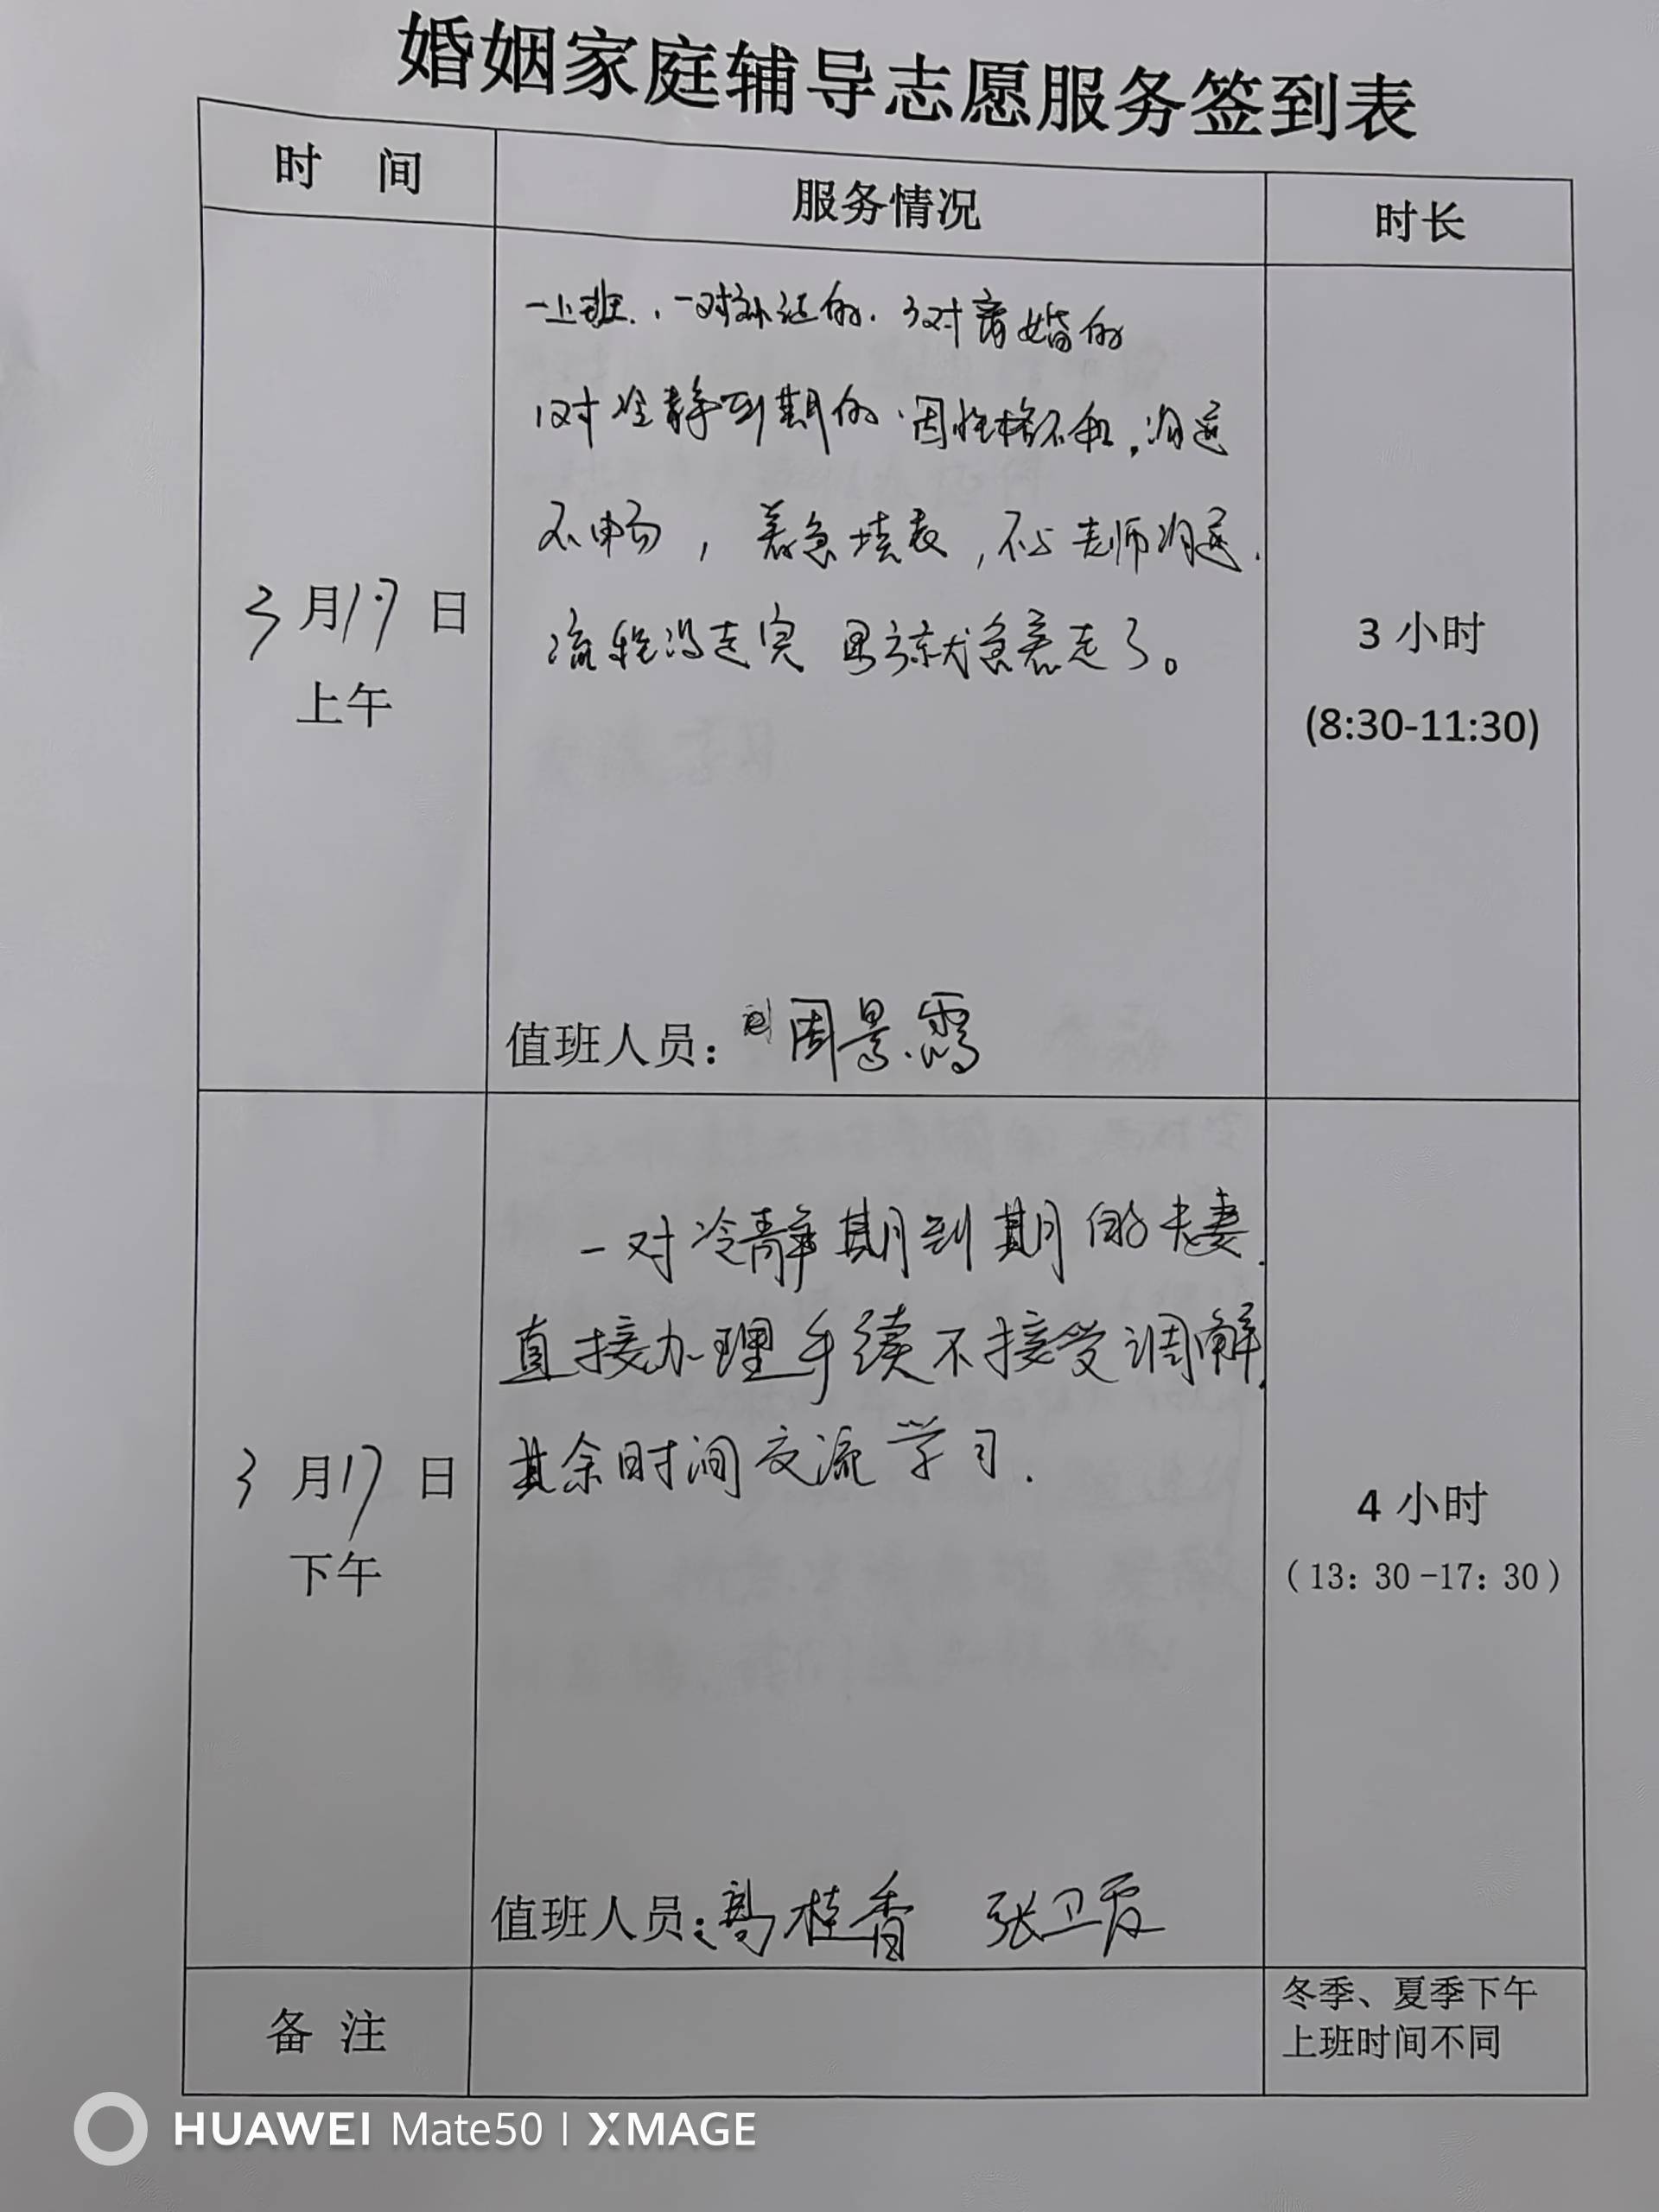 婚姻家庭辅导志愿服务签到表
时 间
服务情况
时长
一上班.、一对补证的.3对离婚的
1对冷静到期的.因性格不和,沟通
不畅,着急填表,不与老师沟通.
流程没走完 男方就急着走了。
3月17日
上午
3 小时
(8:30-11:30)
值班人员: 周景霞
一对冷静期到期的夫妻.
直接办理手续不接受调解.
其余时间交流学习.
3月17日
下午
4 小时
(13: 30-17: 30)
值班人员: 高桂香 张卫霞
备 注
冬季、夏季下午
上班时间不同
HUAWEI Mate50 | XMAGE